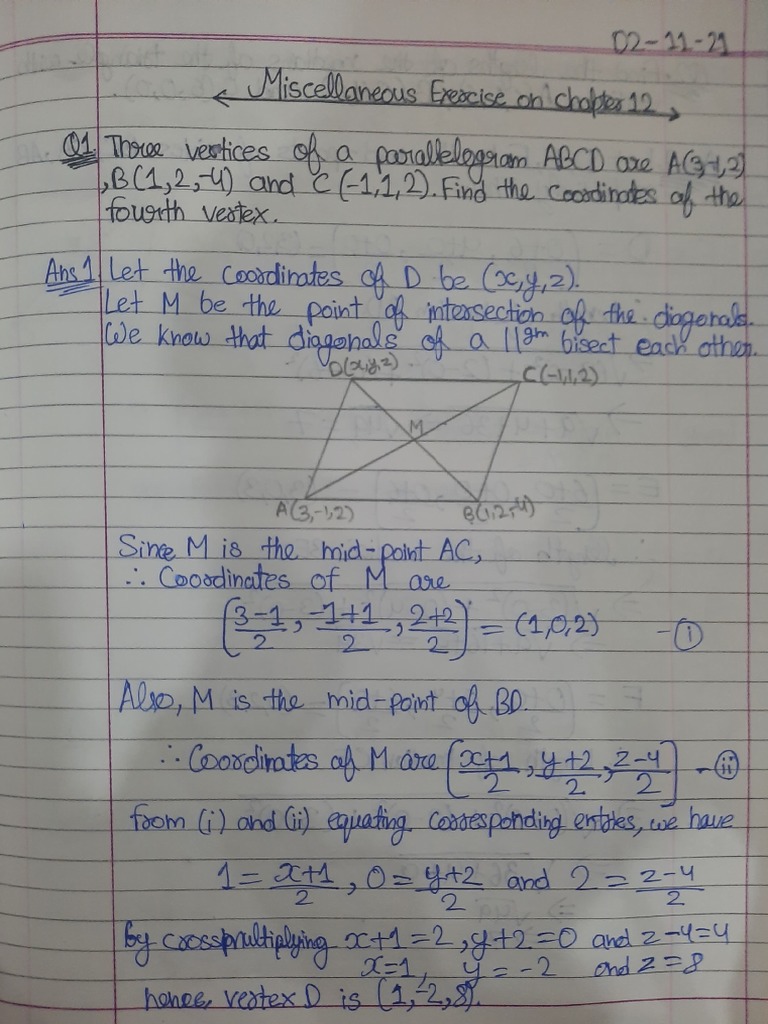 02-11-21
Miscellaneous Exercise on chapter 12
Q1. Three vertices of a parallelogram ABCD are A(3,-1,2)
,B(1,2,-4) and C(-1,1,2). Find the coordinates of the
fourth vertex.
Ans 1 Let the coordinates of D be (x,y,z).
Let M be the point of intersection of the diagonals.
We know that diagonals of a ||gm bisect each other.
D(x,y,z) C(-1,1,2)
M
A(3,-1,2) B(1,2,-4)
Since M is the mid-point AC,
∴ Coordinates of M are
[3-1/2, -1+1/2, 2+2/2] = (1,0,2) - (i)
Also, M is the mid-point of BD.
∴ Coordinates of M are [x+1/2, y+2/2, z-4/2] - (ii)
from (i) and (ii) equating corresponding entries, we have
1 = x+1/2, 0 = y+2/2 and 2 = z-4/2
By crossmultiplying x+1=2, y+2=0 and z-4=4
x=1, y=-2 and z=8
hence, vertex D is (1,-2,8).